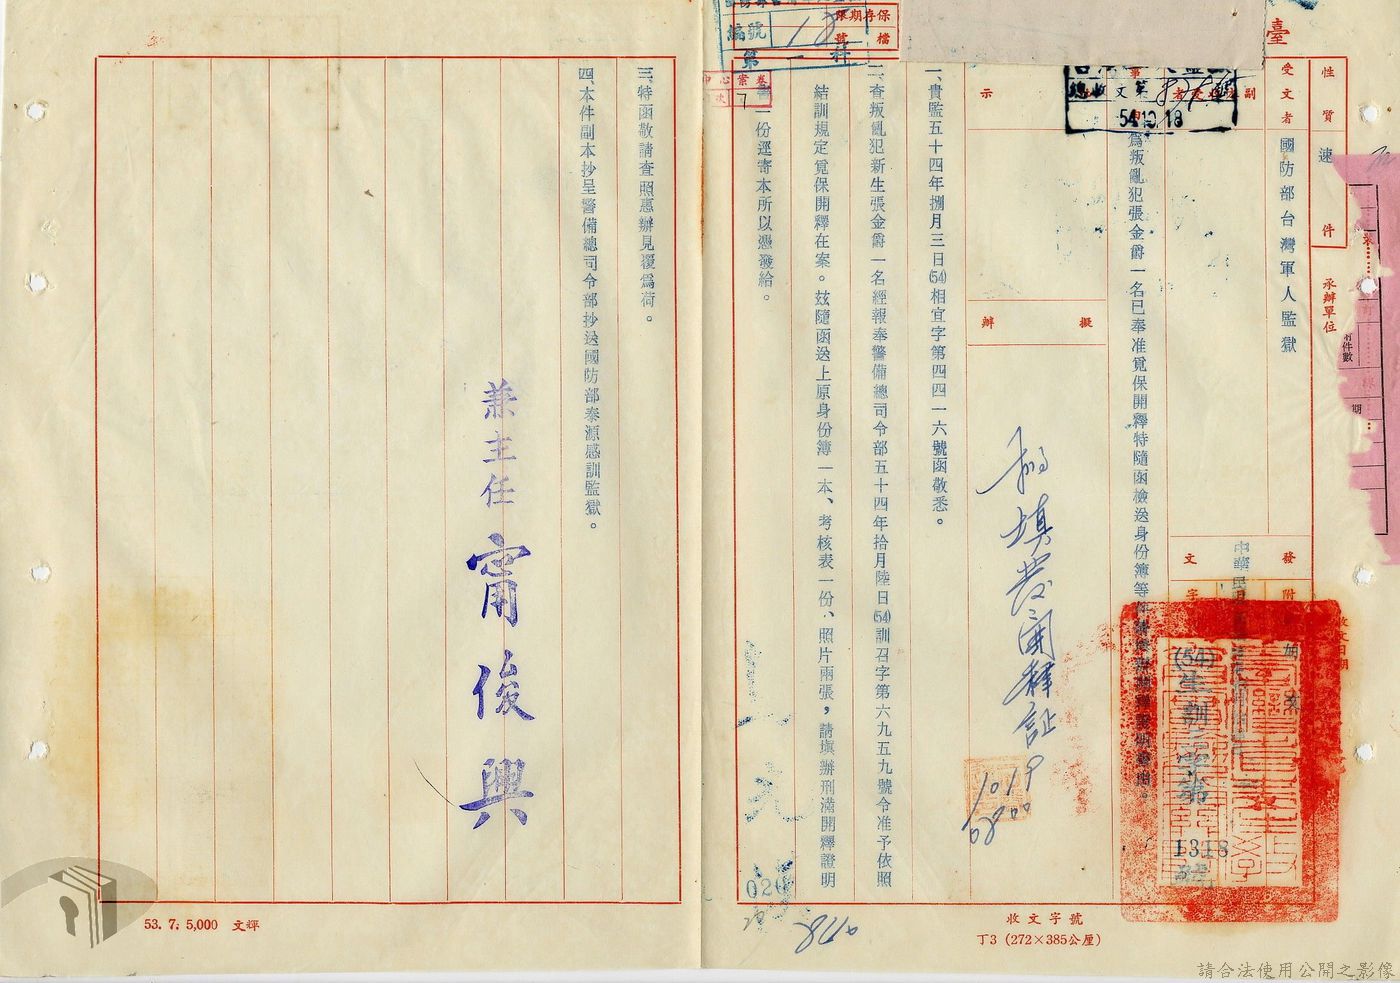 臺
保存期限
檔號
編號
18
第一科
卷
案
7
性質
速件
承辦單位
件數
期
受文者
國防部台灣軍人監獄
副本收受者
總收文第
54.10.18
示
擬辦
發文
附件
如文
中華民國
(54)生訓字第
1318
號
為叛亂犯張金爵一名已奉准覓保開釋特隨函檢送身份簿等件請
一、貴監五十四年捌月三日(54)相宜字第四四一六號函敬悉。
二、查叛亂犯新生張金爵一名經報奉警備總司令部五十四年拾月陸日(54)訓召字第六九五九號令准予依照
結訓規定覓保開釋在案。玆隨函送上原身份簿一本、考核表一份、照片兩張,請塡辦刑滿開釋證明
書一份逕寄本所以憑發給。
三、特函敬請查照惠辦見覆為荷。
四、本件副本抄呈警備總司令部抄送國防部泰源感訓監獄。
兼主任 甯俊興
填發開釋証
1019
0800
026
收文字號
丁3 (272×385公厘)
53. 7. 5,000 文輝
請合法使用公開之影像